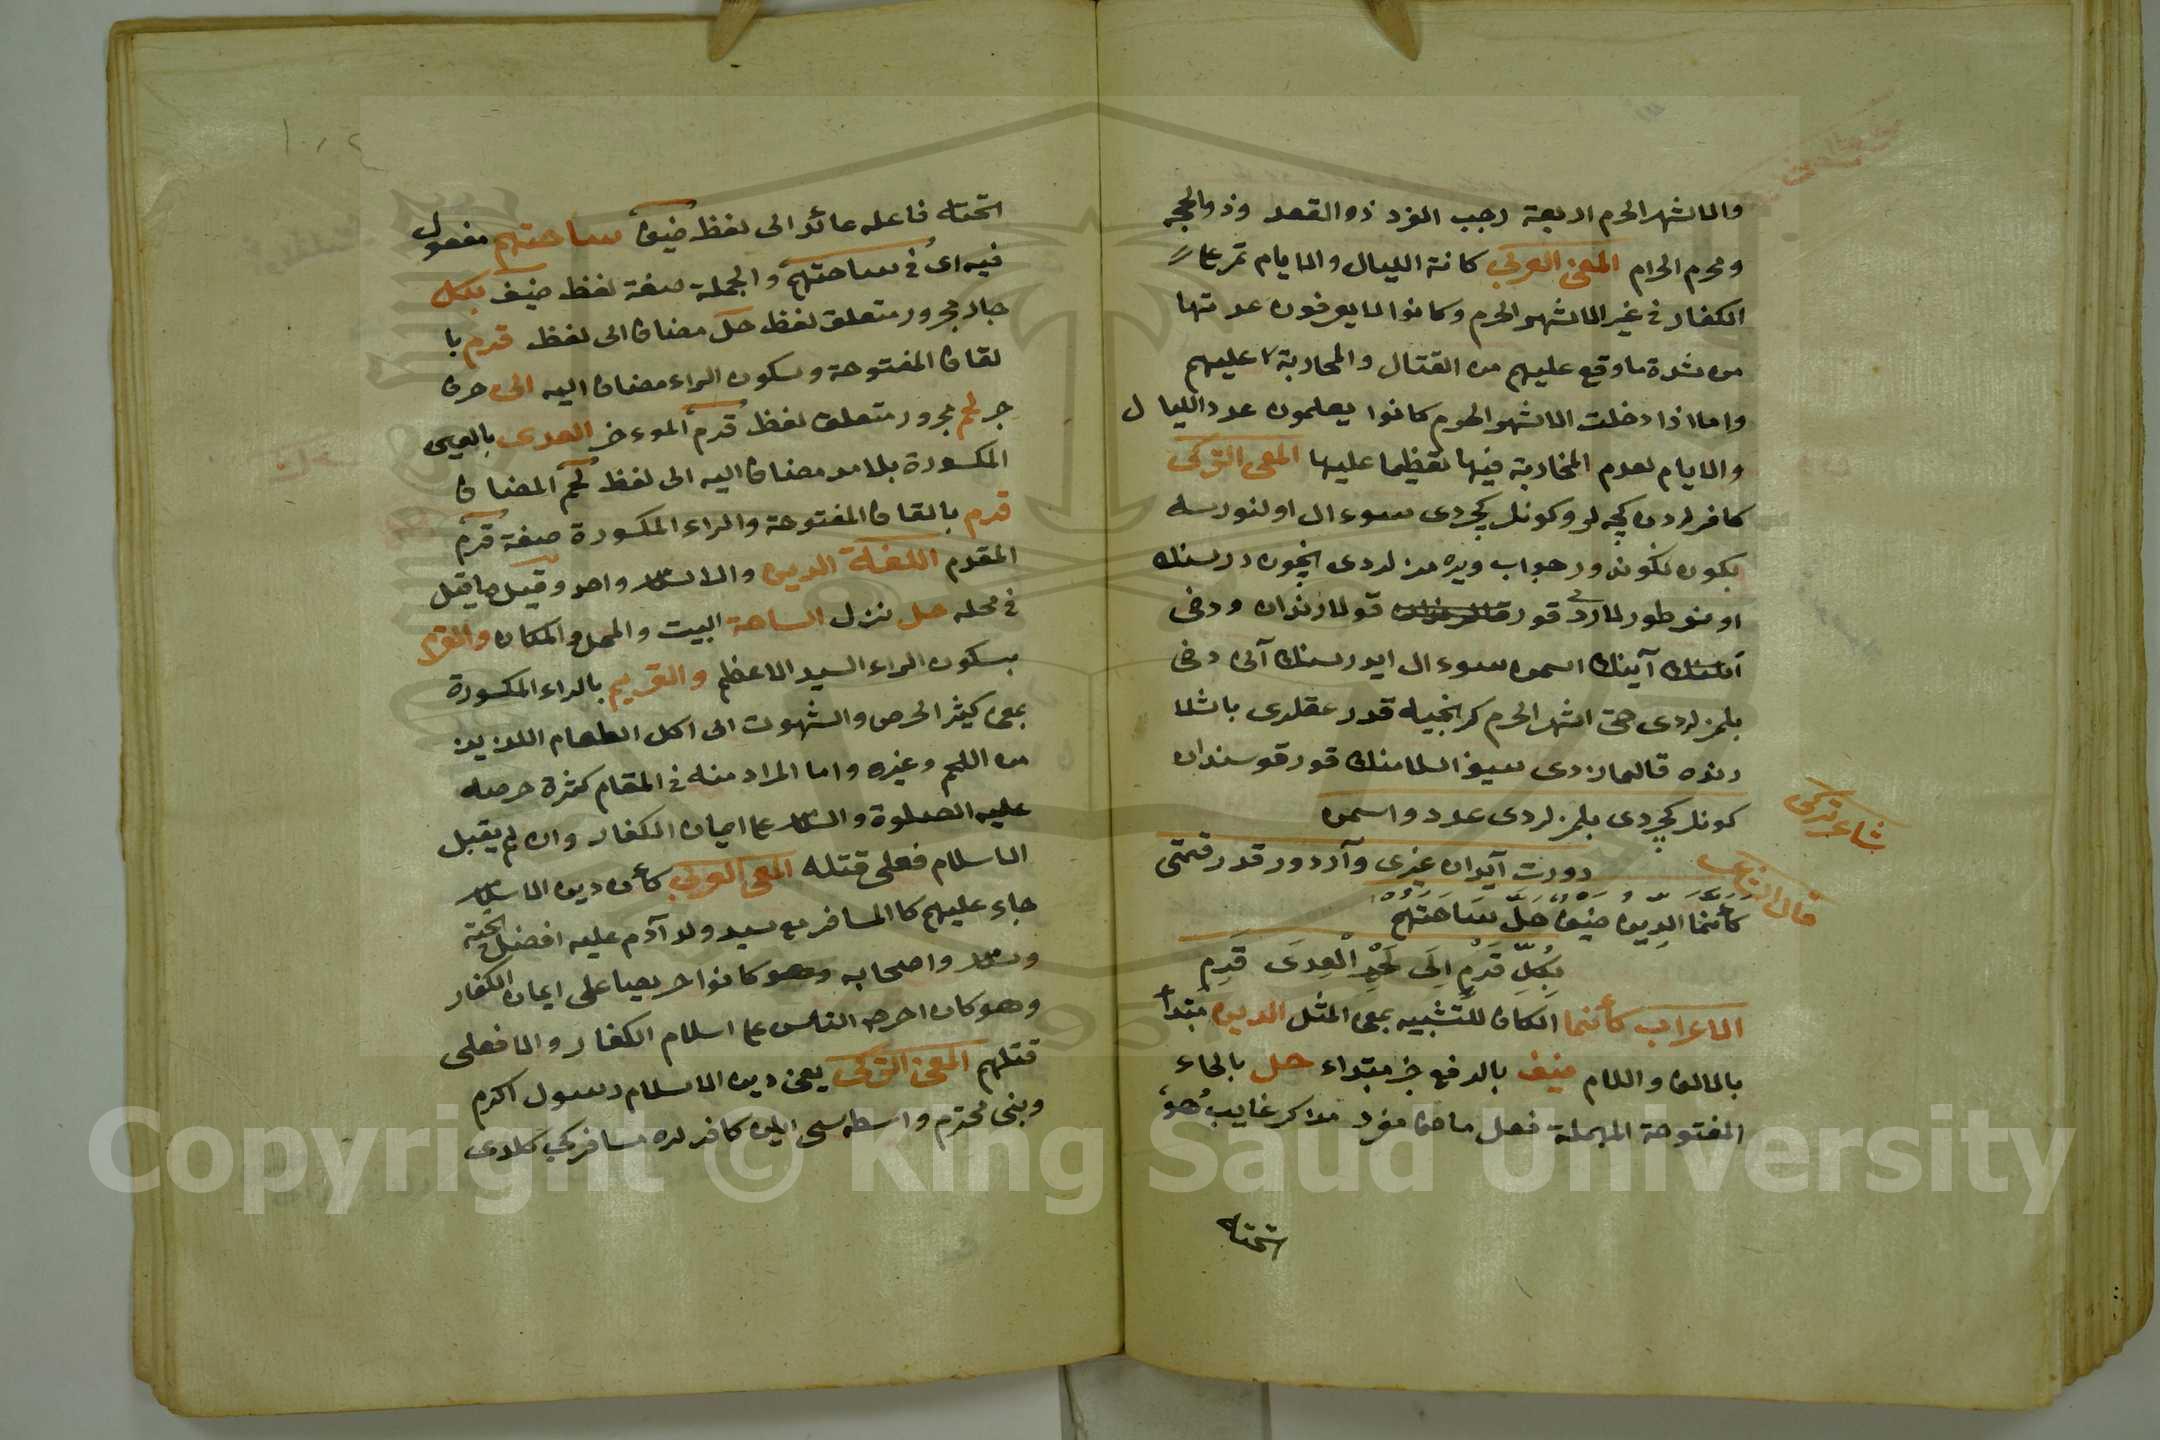 والاشهر الحرم اربعة رجب الفرد ذو القعد وذو الحجه
ومحرم الحرام المعنى العربى كانة الليال والايام تمر على
الكفار فى غير الاشهر الحرم وكانوا لا يعرفون عدتها
من شدة ما وقع عليهم من القتال والمحاربة عليهم
واما اذا دخلت الاشهر الحرم كانوا يعلمون عدد الليال
والايام لعدم المحاربة فيها تعظيما عليها المعنى التركى
كافرلردن كيجه لر وكونلر كچردى سوءال اولنورسه
بكون نكوندر جواب ويره مزلردى انچون درسنك
اونو طورلاردى قور قولارندان ودخى
آينك اسمن سوءال ايدرسنك آنى دخى
بلمزلردى حتى اشهر الحرم كرنجيه قدر عقللرى باشلا
رنده قالمازدى سيف اسلامنك قورقوسندان
كونلر كچردى بلمزلردى عدد واسمن
شاعر تركى
دورت آيدان غيرى وآردور قدر قيمتى
قال الناظم
كَأَنَّمَا الدِّينُ ضَيْفٌ حَلَّ سَاحَتَهُمْ
بِكُلِّ قَرْمٍ اِلَى لَحْمِ الْعِدَى قَرِمِ
الاعراب كأنما الكاف للتشبيه بمعنى المثل الدين مبتدأ
بالالف واللام ضيف بالرفع خبر مبتداء حل بالحاء
المفتوحة المهملة فعل ماض مفرد مذكر غايب هو
تحته
تحته فاعله عائد الى لفظ ضيف ساحتهم مفعول
فيه اى فى ساحتهم والجملة صفة لفظ ضيف بكل
جار مجرور متعلق لفظ حل مضاف الى لفظ قرم با
لقاف المفتوحة وسكون الراء مضاف اليه الى حرف
جر لحم مجرور متعلق لفظ قرم الموءخر العدى بالعين
المكسورة بلا مد مضاف اليه الى لفظ لحم المضاف
قرم بالقاف المفتوحة والراء المكسورة صفة قرم
المقدم اللغة الدين والاسلام واحد وقيل ما يقل
فى محله حل نزل الساحة البيت والمحل والمكان والقرم
بسكون الراء السيد الاعظم والقريم بالراء المكسورة
بمعنى كثير الحرص والشهوت الى اكل الطعام اللذيذ
من اللحم وغيره واما المراد منه فى المقام كثرة حرصه
عليه الصلوة والسلام على ايمان الكفار وان لم يقبل
الاسلام فعلى قتله المعنى العربى كأن دين الاسلام
جاء عليهم كالمسافر مع سيد ولد آدم عليه افضل تحية
وسلام واصحابه وهو كانوا حريصا على ايمان الكفار
وهو كان احرص الناس على اسلام الكفار والا فعلى
قتلهم المعنى التركى يعنى دين الاسلام رسول اكرم
ونبى محترم واسطه سى ايله كافرلره مسافر كبى كلدى
Copyright © King Saud University